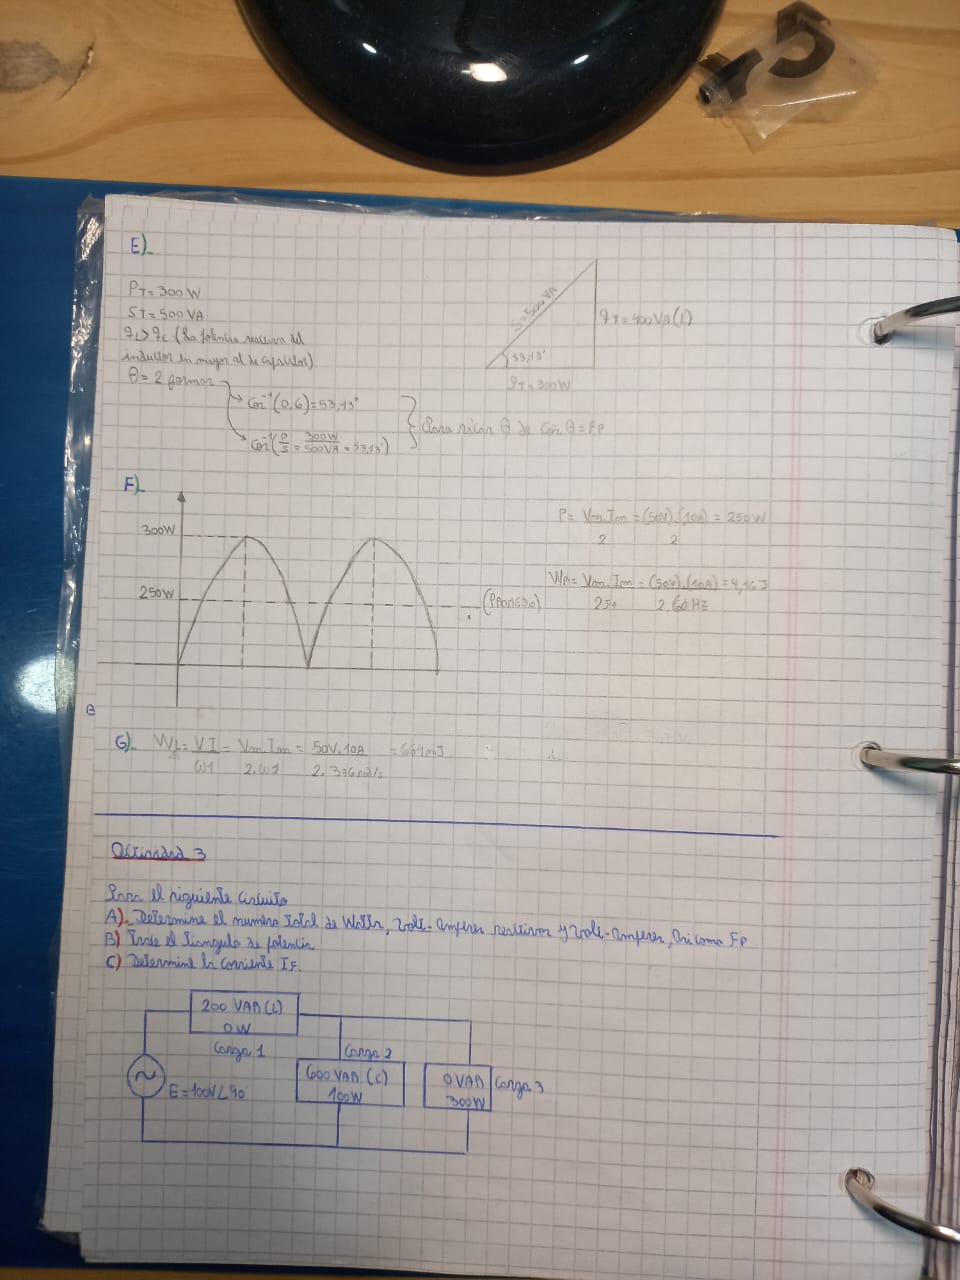 E)_
PT=300W
ST=500VA
qL>qC (La potencia reactiva del
inductor es mayor al de capacitor)
θ=2 formas
Cos⁻¹(0,6)=53,13°
Cos⁻¹(P/S = 300W/500VA = 53,13°)
Para sacar θ de Cos θ=Fp
S=500 VA
qT=400VA(L)
53,13°
PT=300W
F)_
300W
250W
(PROMEDIO)
P= Vm.Im/2 = (50V).(10A)/2 = 250W
WR= Vm.Im/2f1 = (50V).(10A)/2.60Hz = 4,16J
B
G)_ WL= VI/ω1 = Vm.Im/2.ω1 = 50V.10A/2.376rad/s = 664mJ
Actividad 3
Para el siguiente circuito
A)_ Determine el numero total de Watts, volt-amperes reactivos y volt-amperes, asi como Fp
B) Trace el triangulo de potencia
C) Determine la corriente IF.
200 VAR (L)
0W
Carga 1
Carga 2
600 VAR (C)
100W
0VAR
300W
Carga 3
E=100V∠90°